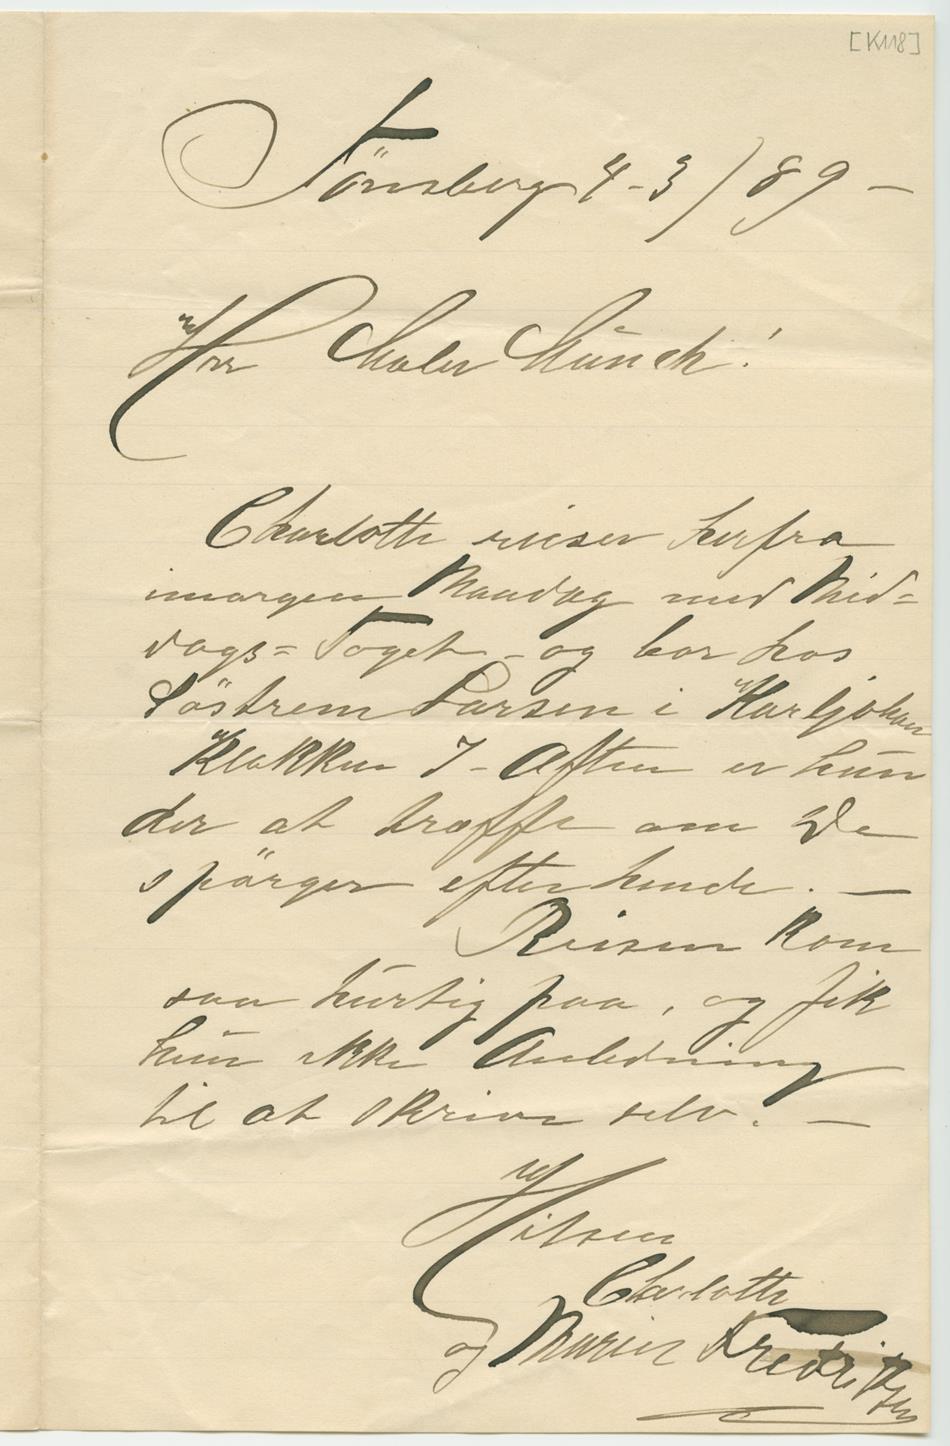 [K118]
Tönsberg 4-3/89 –
Herr Maler Münch!
Charlotte reiser herfra
imorgen Mandag med Mid=
dags=Toget – og bor hos
Söstrene Larsen i Karljohan
Klokken 7 – Aften er hun
der at træffe om De
spörger efter hende. —
Reisen kom
saa hurtig paa, og fik
hun ikke Anledning
til at skrive selv. —
Hilsen
Charlotte
og Marie Fredriksen